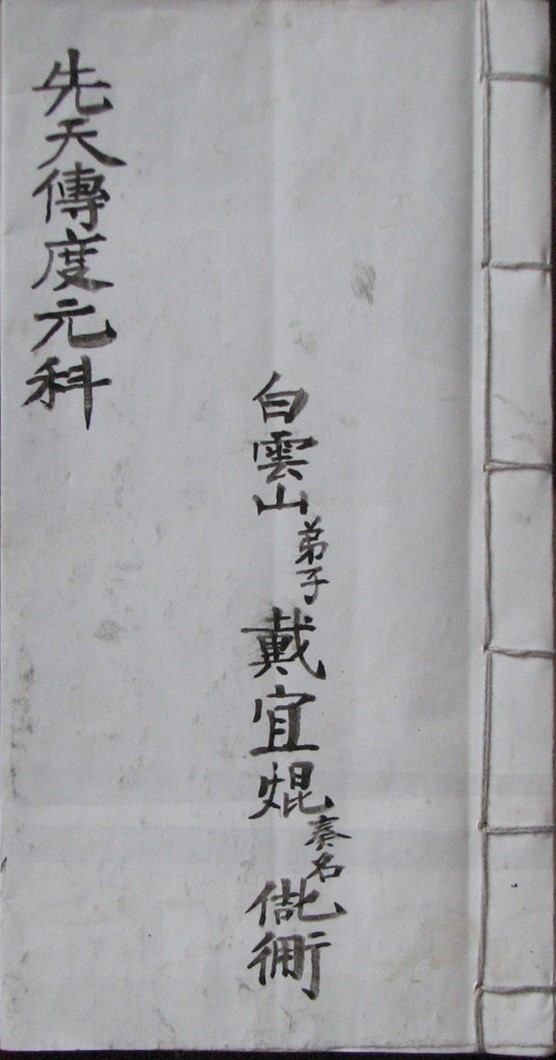 白雲山弟子戴宜焜奏名
先天傳度元科